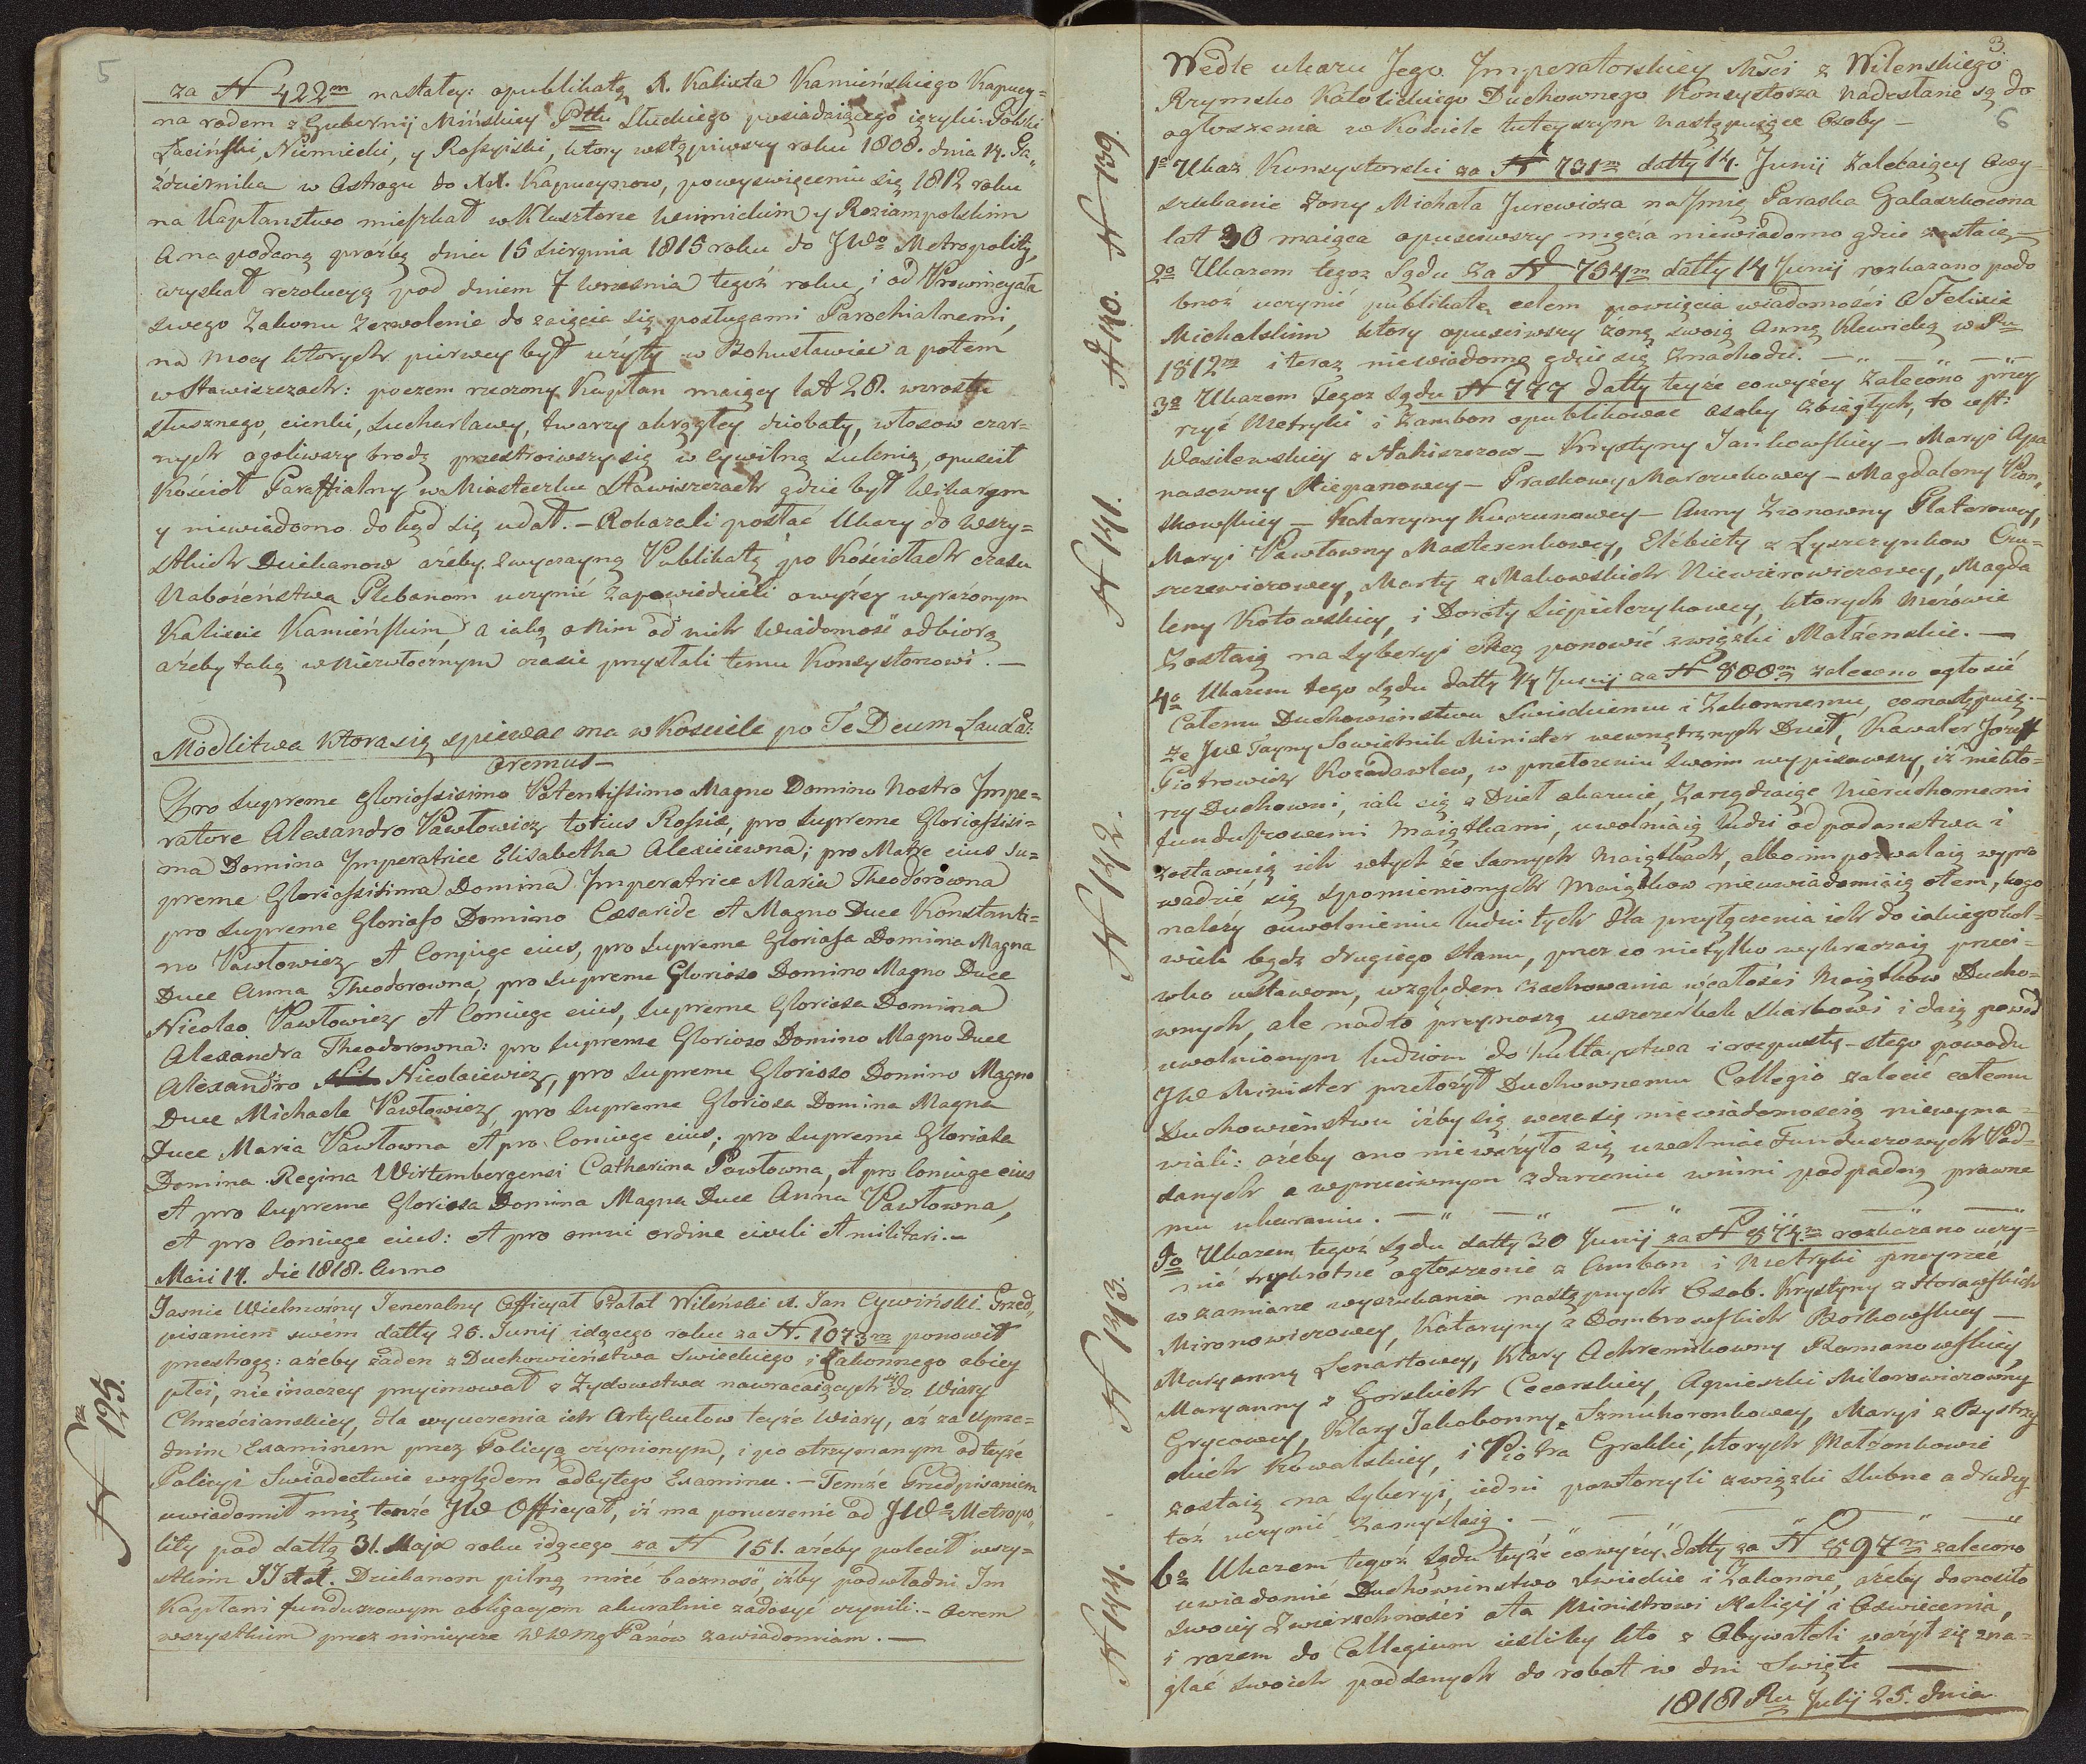 5
za N 422m nastałey: opublikatę X. Kalixta Kamieńskiego Kapucy=
na rodem z Gubernij Mińskiey Pttu Słuckiego posiadaiącego ięzyki: Polski
Łaciński, Niemiecki, y Rossyiski, ktory wstąpiwszy roku 1808. dnia 14. Pa„
ździernika w Ostrogu do XX. Kapucynow, powyswięceniu się 1812 roku
na Kapłanstwo mieszkał w Klasztorze Winnickim y Roziampolskim
a na podaną prożbę dnia 15 Sierpnia 1815 roku do JWo Metropolity,
uzyskał rezolucyą pod dniem 7 Wrzesnia tegoż roku, i od Prowincyała
swego Zakonu Zezwolenie do zaięcia się posługami Parochialnemi,
na mocy ktorych pierwey był użyty w Bohusławice a potem
w Stawiszczach: poczem rzeczony Kapłan maiący lat 28. wzrostu
słusznego, cienki, Sucharlawy, twarzy okrągłey dziobaty, włosow czar=
nych ogoliwszy brodę przestroiwszy się w cywilną Suknię, opuscił
Kościoł Paraffialny w Miasteczku Stawiszczach gdzie był Wikarym
y niewiadomo dokąd się udał. – Rokazali posłać Ukazy do Wszy=
stkich Dziekanow ażeby zwyczayną Publikatę po Kościołach czasu
Nabożeństwa Plebanom uczynić zapowiedzieli o wyżey wyrażonym
Kalixcie Kamieńskim a iaką o Nim od nich Wiadomość odbiorą
ażeby taką w Niezwłocznym czasie przysłali temu Konsystorzowi. –
Modlitwa ktora się spiewac ma w Kosciele po Te Deum Laudas:
Oremus –
Pro Supreme Gloriossissimo Potentissimo Magno Domino Nostro Impe=
ratore Alexandro Pawłowicz totius Rossiæ, pro Supreme Gloriossisi=
ma Domina Imperatrice Elisabetha Alexieiewna; pro Matre eius Su=
preme Gloriossissima Domina Imperatrice Maria Theodorowna
pro Supreme Glorioso Domino Cæsaride et Magno Duce Konstanti=
no Pawłowicz et Conjuge eius, pro Supreme Gloriosa Domina Magna
Duce Anna Theodorowna, pro Supreme Glorioso Domino Magno Duce
Nicolao Pawłowicz et Coniuge eius, Supreme Gloriosa Domina
Alexandra Theodorowna: pro Supreme Glorioso Domino Magno Duce
Alexandro Nicolaiewicz, pro Supreme Glorioso Domino Magno
Duce Michaele Pawłowicz pro Supreme Gloriosa Domina Magna
Duce Maria Pawłowna et pro Coniuge eius; pro Supreme Gloriosa
Domina Regina Wirtembergensi Catharina Pawłowna, et pro Coniuge eius
et pro Supreme Gloriosa Domina Magna Duce Anna Pawłowna,
et pro Coniuge eius: et pro omni ordine civili et militari. –
Maii 14. die 1818. Anno
N ra 195
Jasnie Wielmożny Jeneralny Officyał Prałat Wileński X. Jan Cywiński Przed„
pisaniem swém datty 25. Junij idącego roku za N. 1073m ponowił
przestrogę: ażeby żaden z Duchowieństwa swieckiego i Zakonnego obiey
płci, nie inaczey przyimował z Żydowstwa nawracaiących się do Wiary
Chrześcianskiey, dla wyuczenia ich Artykułow teyże Wiary, aż za uprze=
dnim Examinem przez Policyą czynionym, i po otrzymanym od teyże
Policyi Swiadectwie względem odbytego Examinu. – Temże Przedpisaniem
uwiadomił mię tenże JW Officyał, iż ma poruczenie od JWo Metropo„
lity pod dattą 31. Maja roku idącego za N 151. ażeby polecił wszy=
stkim JJ XX. Dziekanom pilną mieć baczność, iżby podwładni Im
Kapłani funduszowym obligacyom akuratnie zadosyć czynili. – Oczem
wszystkim przez ninieysze WWMę Panow zawiadomiam. –
3
6
Wedle ukazu Jego Imperatorskiey Mści z Wilenskiego
Rzymsko Katolickiego Duchownego Konsystorza nadesłane są do
ogłoszenia w Kościele tuteyszym następuiące Osoby –
N 139.
1o Ukaz Konsystorski za N 731m datty 14. Junij zalecaiący o wy-
szukanie Zony Michała Jurewicza na Imię Paraska Gałaszkowna
lat 30 maiąca opusciwszy męża niewiadomo gdzie zostaie –
N 140.
2o Ukazem tegoz Sądu za N 734m datty 14 Junij rozkazano podo
bnoż uczynić publikatę celem powzięcia wiadomości O Felixie
Michalskim ktory opusciwszy żonę swoią Annę Klewickę w Ru
1812m i teraz niewiadomo gdzie się znachodzi. –
N 141.
3o Ukazem Tegoz Sądu N 777 datty teyże co wyżey Zalecono przey
rzyć Metryki i z ambon opublikowac osoby zbiegłych, to iest:
Wasilewskiey z Stahiszczow – Krystyny Jankowskiey – Maryi Apa
nasowny Stiepanowey – Praskowy Marczukowey – Magdaleny Pion„
tkowskiey – Katarzyny Kuczunowey – Anny Zronowny Platerowey,
Maryi Pawłowny Masterenkowey, Elżbiety z Łyszczynkow Czu=
szczewiczowey, Marty z Makowskich Niewierowiczowey, Magda
leny Kotowskiey, i Doroty Siepielczykowey, ktorych Mężowie
Zostaią na Syberyi chcą ponowić związki Małżenskie. –
N 142.
4o Ukazem tego Sądu datty 14 Junij za N 800m zalecono ogłosić
Całemu Duchowienstwu Swieckiemu i Zakonnemu, co następuie:
że JW Tayny Sowietnik Minister wewnętrznych Dzieł, Kawaler Jozef
Piotrowicz Kozadawlew, w przełożeniu Swoim wypisawszy, iż niekto=
rzy Duchowni, iak się z Dzieł okazuie, Zarządzaiąc Nieruchomemi
funduszowemi Maiątkami, uwolniaią ludzi od podanstwa i
zostawuią ich wtych że Samych Maiątkach, albo im pozwalaią wypro
wadzić się z spomienionych Maiątkow nieuwiadomiaią otem, kogo
należy o uwolnieniu ludzi tych dla przyłączenia ich do iakiegokol-
wiek bądz drugiego stanu, przez co nietylko wykraczaią przeci-
wko ustawom, względem zachowania w całości Maiątkow Ducho=
wnych, ale nadto przynoszą uszczerbek Skarbowi i daią powod
uwolnionym ludziom do Tułłaystwa i rozpusty – z tego powodu
JW Minister przełożył Duchownemu Collegio zalecić całemu
Duchowieństwu iżby się wczasie niewiadomoscią niewyma=
wiali: ażeby ono nieważyło się uwalniac Funduszowych Pod-
danych a w przeciwnym zdarzeniu winni podpadną prawne
mu ukaraniu. –
N 143.
5o Ukazem tegoż Sądu datty 30 Junij za N 874m rozkazano uczy-
nić trzykrotne ogłoszenie z Ambon i Metryki przeyrzeć
w zamiarze wyszukania następnych Osob. Krystyny z Horawskich
Mironowiczowey, Katarzyny z Dombrowskich Boikowskiey –
Maryanny Lenartowey, Klary Achremikowny Romanowskiey,
Maryanny z Gorskich Cecerskiey, Agnieszki Milorowiczowny
Grycowey, Klary Jakobonny Szmukoronkowey, Maryi z Bystrzy
ckich Kowalskiey, i Piotra Grekki, ktorych Małżonkowie
zostaią na Syberyi, iedni powtorzyli związki Slubne a drudzy
toż uczynić Zamyslaią. –
N 144.
6o Ukazem tegoż Sądu teyże co wyżey datty za N 897m zalecono
uwiadomić Duchowienstwo Swieckie i Zakonne, ażeby donosiło
Swoiey Zwierzchności ata Ministrowi Religij i Oswiecenia,
i razem do Collegium iesliby kto z Obywateli ważył się zna=
glać Swoich poddanych do robot w dni Swięte –
1818 Ru Julij 25. dnia